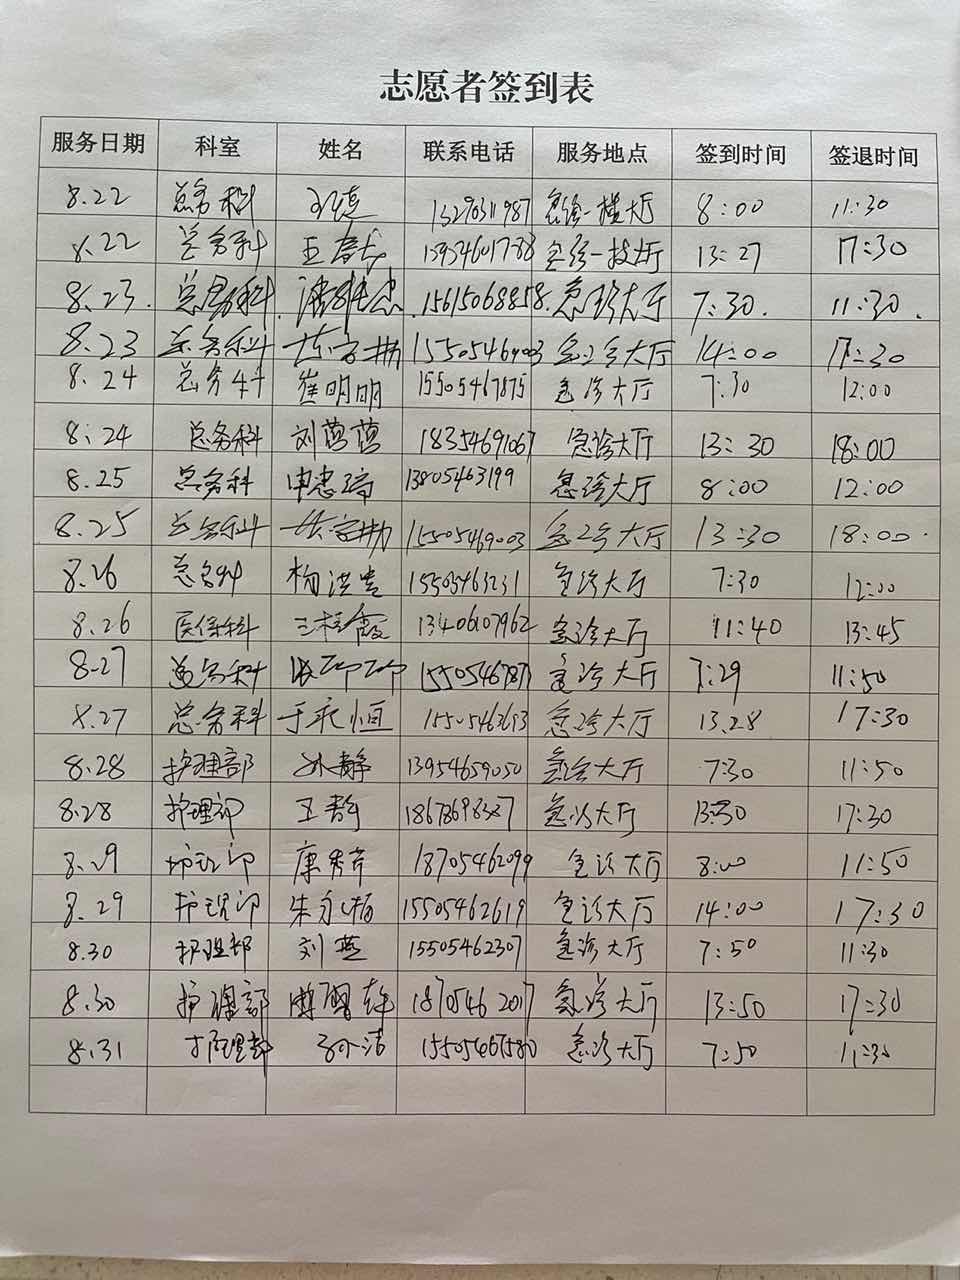 志愿者签到表
服务日期 科室 姓名 联系电话 服务地点 签到时间 签退时间
8.22 总务科 13290311987 急诊一楼大厅 8:00 11:30
8.22 总务科 王 急诊一楼大厅 13:27 17:30
8.23. 总务科. 15615068858. 急诊大厅 7:30. 11:30.
8.23 总务科 15505469003 急诊大厅 14:00 17:30
8.24 总务科 崔明明 15505467875 急诊大厅 7:30 12:00
8.24 总务科 刘茵茵 18354691067 急诊大厅 13:30 18:00
8.25 总务科 申忠 13805463199 急诊大厅 8:00 12:00
8.25 总务科 15505469003 急诊大厅 13:30 18:00.
8.26 总务科 杨洪贵 15505463231 急诊大厅 7:30 12:00
8.26 医保科 王桂霞 13406107962 急诊大厅 11:40 13:45
8.27 总务科 急诊大厅 7:29 11:50
8.27 总务科 于永恒 急诊大厅 13.28 17:30
8.28 护理部 孙静 13954659050 急诊大厅 7:30 11:50
8.28 护理部 王静 急诊大厅 13:30 17:30
8.29 护理部 康秀芹 18705462099 急诊大厅 8:00 11:50
8.29 护理部 朱永梅 15505462619 急诊大厅 14:00 17:30
8.30 护理部 刘燕 15505462307 急诊大厅 7:50 11:30
8.30 护理部 18705462017 急诊大厅 13:50 17:30
8.31 护理部 孙洁 急诊大厅 7:50 11:30